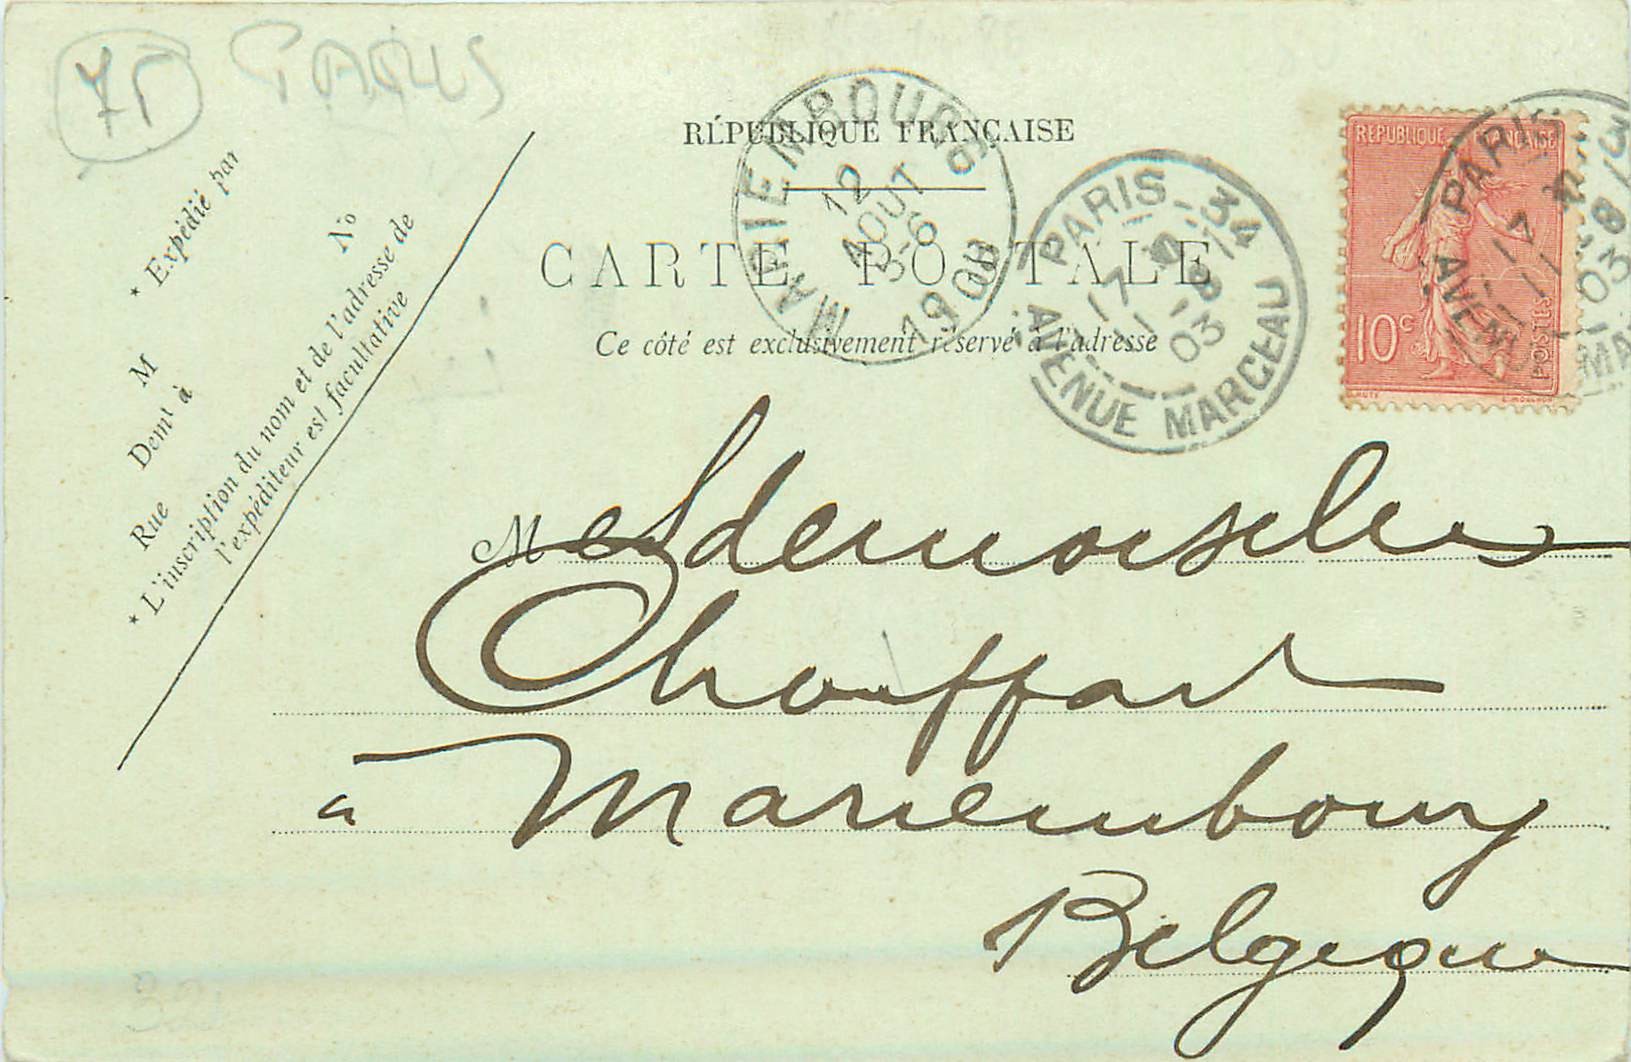 75 PARIS
RÉPUBLIQUE FRANÇAISE
CARTE POSTALE
Ce côté est exclusivement réservé à l'adresse
* Expédié par
M
Demt à
Rue No
* L'inscription du nom et de l'adresse de
l'expéditeur est facultative
MARIEMBOURG
12
AOUT
5-6
1903
PARIS-34
17
11 - 8
03
AVENUE MARCEAU
REPUBLIQUE FRANÇAISE
10c
POSTES
PARIS
17
11 8
03
Mesdemoiselles
Chouffart
à Mariembourg
Belgique